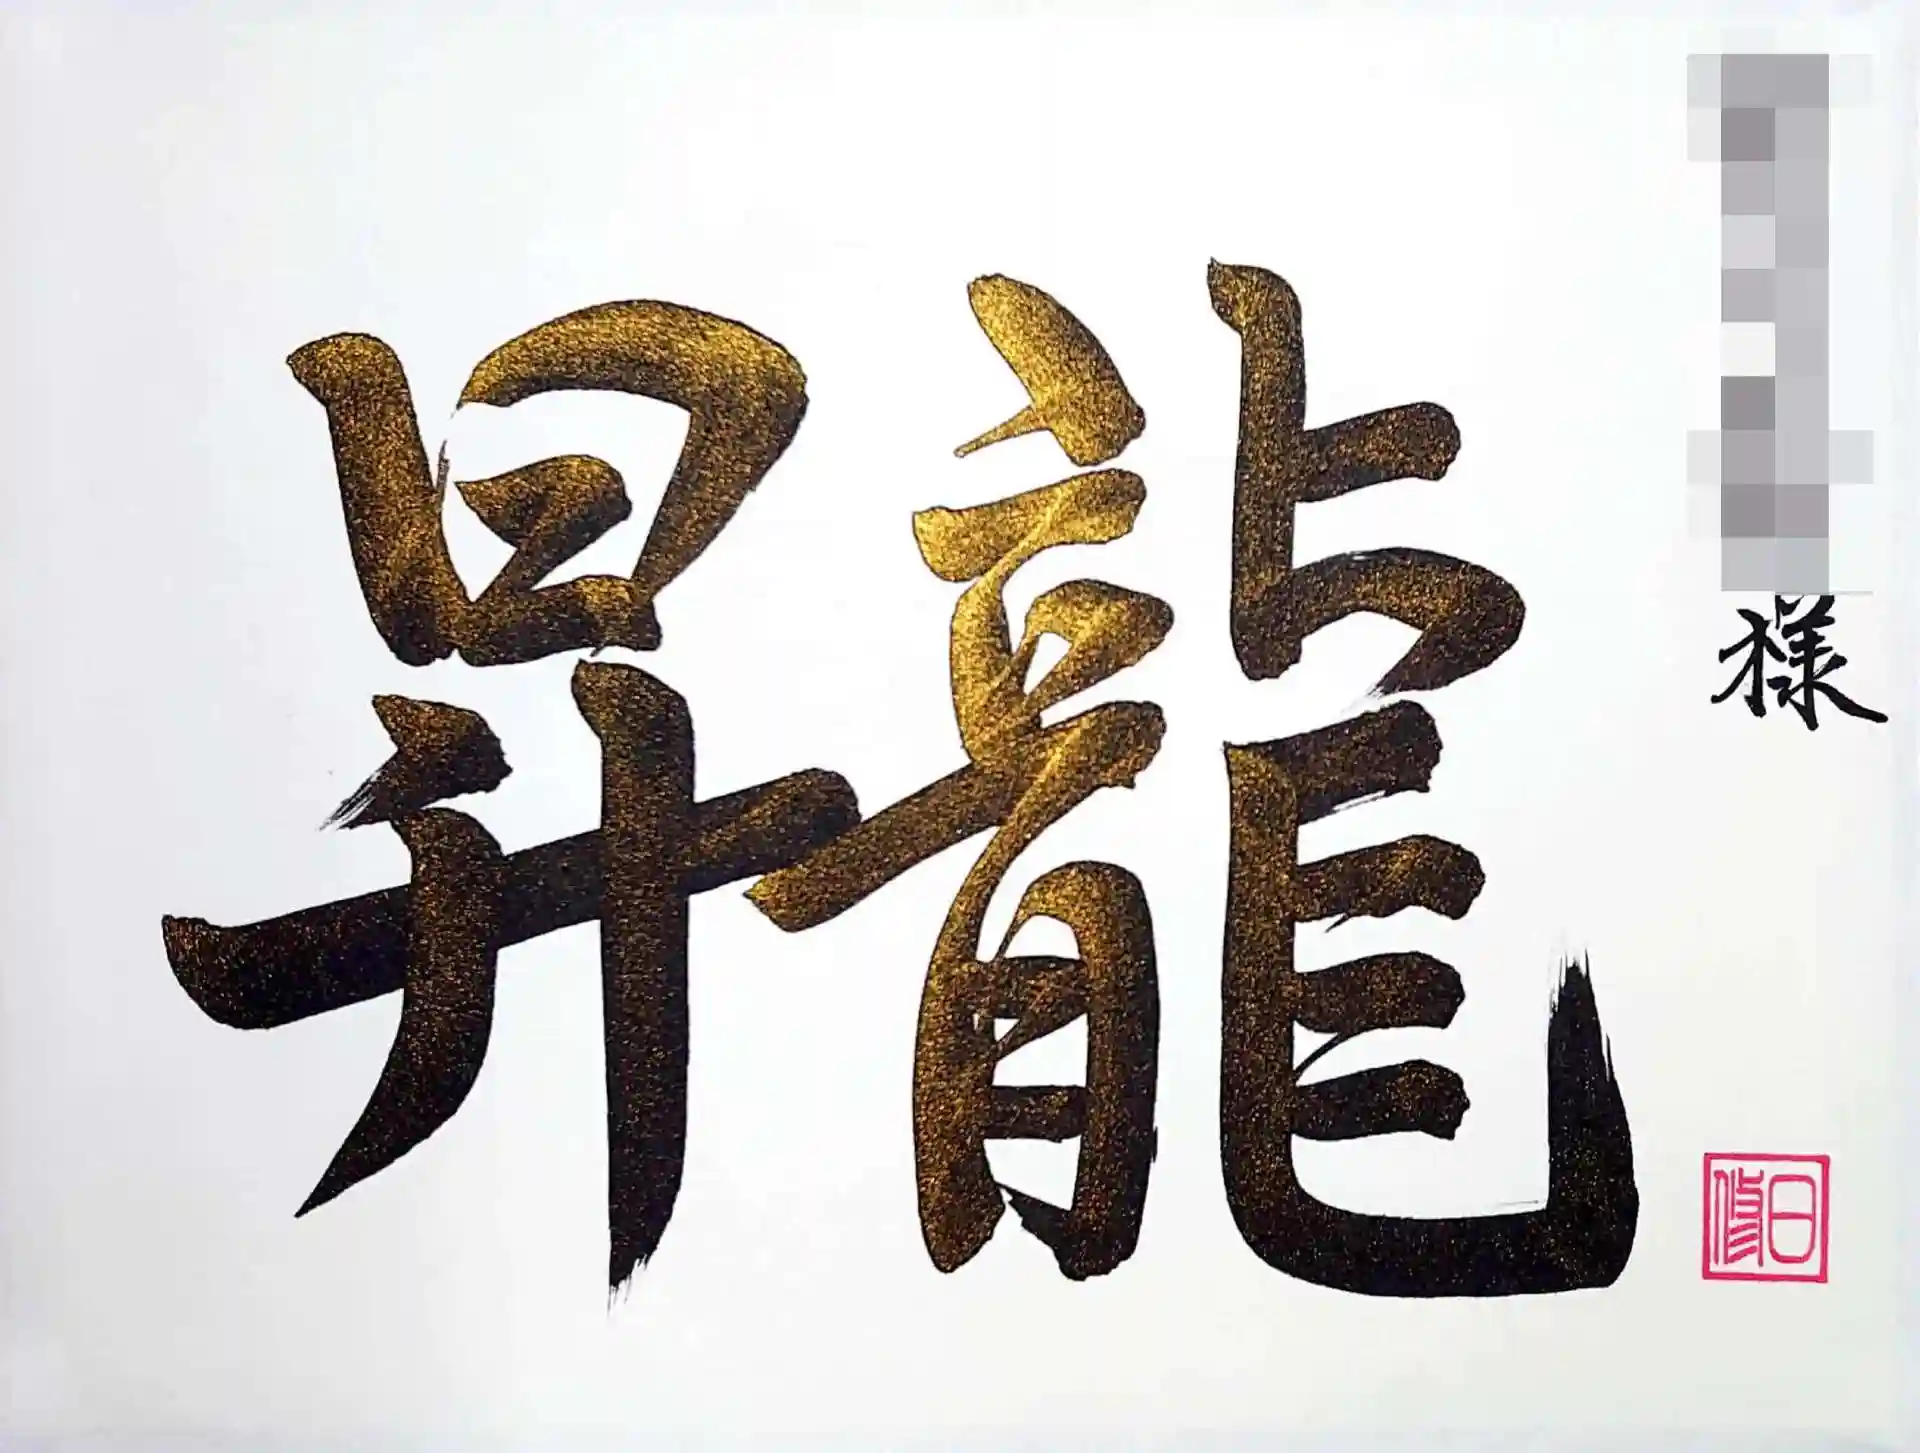 昇龍
様
日修